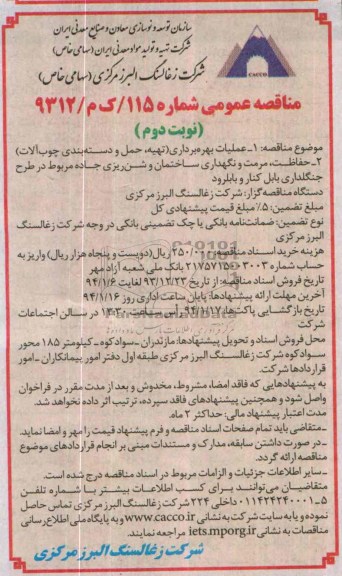 سازمان توسعه و نوسازی معادن و صنایع معدنی ایران
شرکت تهیه و تولید مواد معدنی ایران (سهامی خاص)
شرکت زغالسنگ البرز مرکزی (سهامی خاص)
CACCO
مناقصه عمومی شماره ۱۱۵/ک م/۹۳۱۲
(نوبت دوم)
موضوع مناقصه: ۱-عملیات بهره‌برداری(تهیه، حمل و دسته‌بندی چوب‌آلات)
۲-حفاظت، مرمت و نگهداری ساختمان و شن‌ریزی جاده مربوط در طرح
جنگلداری بابل کنار و بابلرود
دستگاه مناقصه‌گزار: شرکت زغالسنگ البرز مرکزی
مبلغ تضمین: ۵٪ مبلغ قیمت پیشنهادی کل
نوع تضمین: ضمانت‌نامه بانکی یا چک تضمینی بانکی در وجه شرکت زغالسنگ
البرز مرکزی
هزینه خرید اسناد مناقصه: ۲۵۰/۰۰۰ ریال(دویست و پنجاه هزار ریال) واریز به
حساب شماره ۲۱۷۵۷۱۵۰۳۰۰۳ بانک ملی شعبه آزاد مهر
تاریخ فروش اسناد مناقصه: از تاریخ ۹۳/۱۲/۲۳ لغایت ۹۴/۱/۶
آخرین مهلت ارائه پیشنهادها: پایان ساعت اداری روز ۹۴/۱/۱۶
تاریخ بازگشایی پاکت‌ها: ۹۴/۱/۱۷ رأس ساعت ۱۳:۳۰ در سالن اجتماعات
شرکت
محل فروش اسناد و تحویل پیشنهادها: مازندران -سوادکوه -کیلومتر ۱۸۵ محور
سوادکوه شرکت زغالسنگ البرز مرکزی طبقه اول دفتر امور پیمانکاران -امور
قراردادها شرکت.
به پیشنهادهایی که فاقد امضا، مشروط، مخدوش و بعد از مدت مقرر در فراخوان
واصل شود و همچنین پیشنهادهای فاقد سپرده، ترتیب اثر داده نخواهد شد.
مدت اعتبار پیشنهاد مالی: حداکثر ۲ ماه.
-متقاضی باید تمام صفحات اسناد مناقصه و فرم پیشنهاد قیمت را مهر و امضا نماید.
-در صورت داشتن سابقه، مدارک و مستندات مبنی بر انجام قراردادهای موضوع
مناقصه ارائه گردد.
-سایر اطلاعات جزئیات و الزامات مربوط در اسناد مناقصه درج شده است.
متقاضیان می‌توانند برای کسب اطلاعات بیشتر با شماره تلفن
۵-۰۱۱۴۲۴۲۴۰۰۱ داخلی ۲۲۴ شرکت زغالسنگ البرز مرکزی تماس حاصل
نموده و یا به سایت شرکت به نشانی www.cacco.ir و به پایگاه ملی اطلاع‌رسانی
مناقصات به نشانی iets.mporg.ir مراجعه نمایند.
شرکت زغالسنگ البرز مرکزی